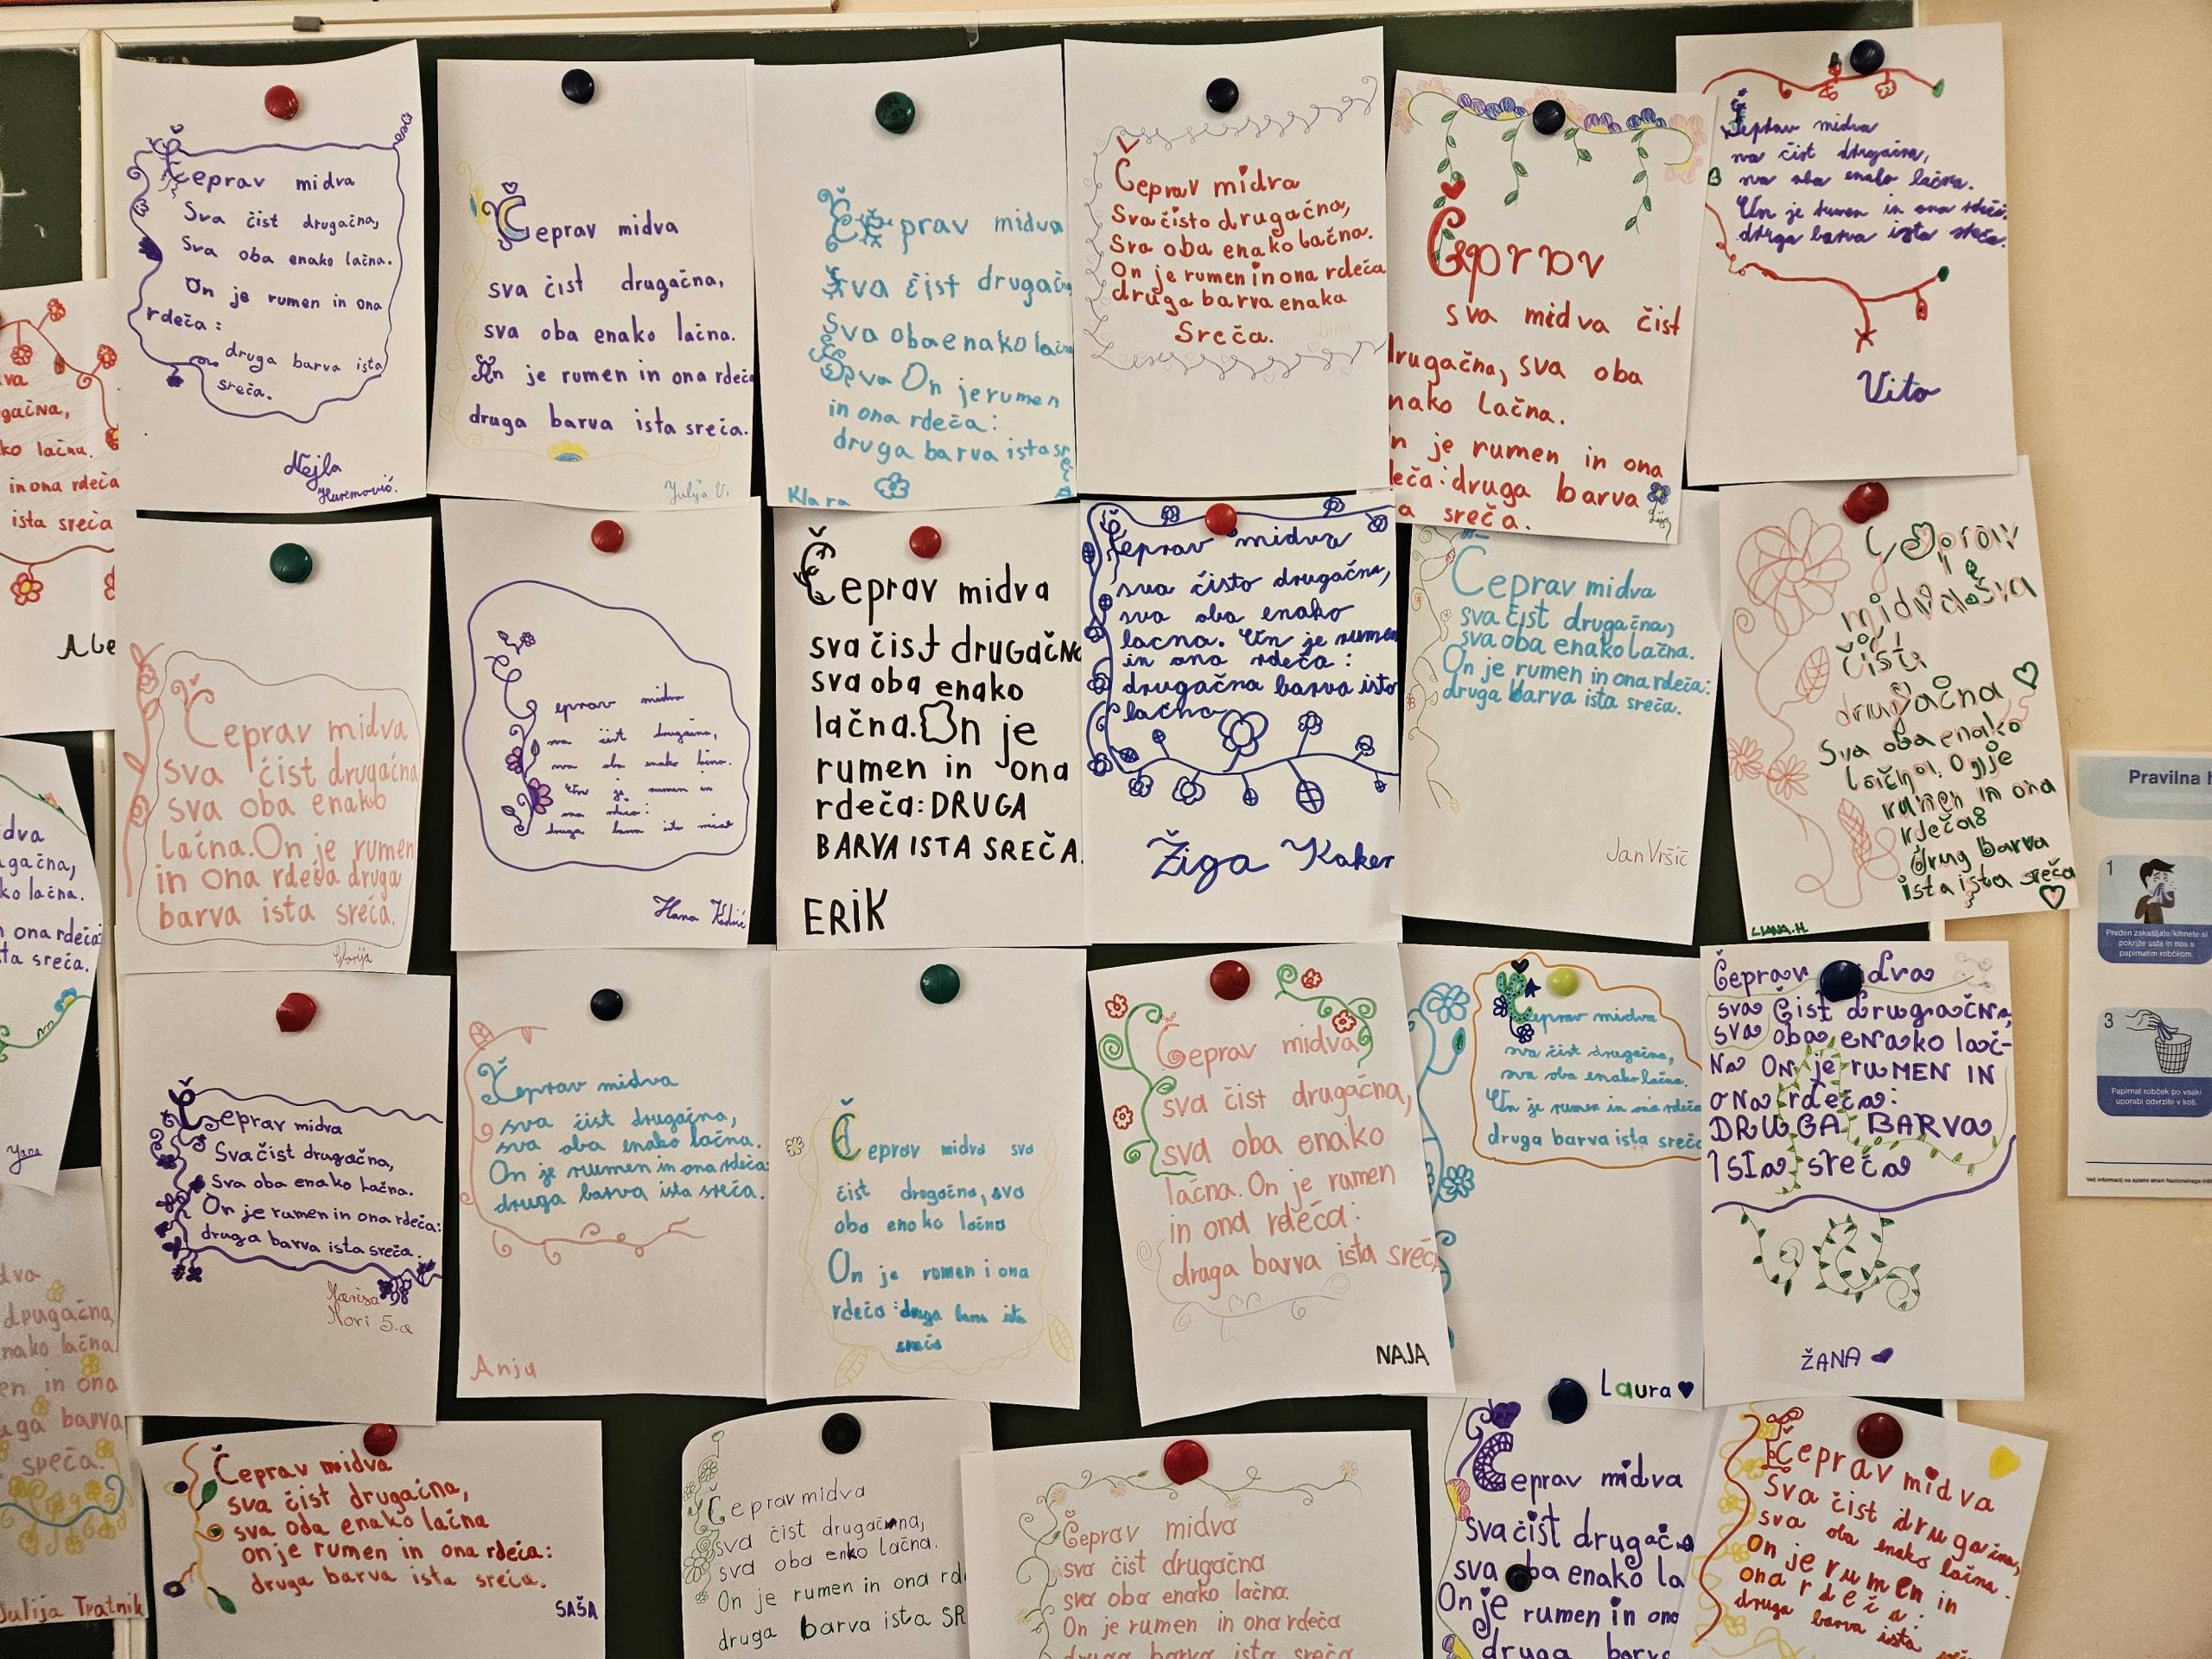 Čeprav midva
Sva čist drugačna,
Sva oba enako lačna.
On je rumen in ona
rdeča:
druga barva ista
sreča.
Nejla
Huremović.
Čeprav midva
sva čist drugačna,
sva oba enako lačna.
On je rumen in ona rdeč
druga barva ista sreča.
Julija V.
Čeprav midva
Sva čist drugač
Sva oba enako lačn
Sva On je rumen
in ona rdeča:
druga barva ista sr
Klara
Čeprav midva
Sva čisto drugačna,
Sva oba enako lačna.
On je rumen in ona rdeča
druga barva enaka
Sreča.
Čeprov
sva midva čist
drugačna, sva oba
nako lačna.
n je rumen in ona
eča: druga barva
a sreča.
Čeprav midva
sva čist drugačna,
sva oba enako lačna.
On je rumen in ona rdeča:
druga barva ista sreča.
Vito
va
gačna,
ko lačna.
in ona rdeča
ista sreča
Abe
Čeprav midva
sva čist drugačna
sva oba enako
lačna. On je rumen
in ona rdeča druga
barva ista sreča.
Marija
Čeprav midva
sva čist drugačna,
sva oba enako lačna.
On je rumen in
ona rdeča:
druga barva ista sreča
Hana
Čeprav midva
sva čist drUGAČNA
sva oba enako
lačna. On je
rumen in ona
rdeča: DRUGA
BARVA ISTA SREČA.
ERIK
Čeprav midva
sva čisto drugačna,
sva oba enako
lačna. On je rumen
in ona rdeča:
drugačna barva isto
lačna
Žiga Kaker
Čeprav midva
sva čist drugačna,
sva oba enako lačna.
On je rumen in ona rdeča:
druga barva ista sreča.
Jan Vršič
Čeprav
midva sva
čist
drugačna
Sva oba enako
lačna. On je
rumen in ona
rdeča:
drug barva
ista ista sreča
LIANA.H.
dva
gačna,
ko lačna.
ona rdeča:
ta sreča.
Yana
Čeprav midva
Sva čist drugačna,
Sva oba enako lačna.
On je rumen in ona rdeča:
druga barva ista sreča.
Marisa
Nori 5.a
Čeprav midva
sva čist drugačna,
sva oba enako lačna.
On je rumen in ona rdeča:
druga barva ista sreča.
Anja
Čeprav midva sva
čist drogačna, sva
oba enako lačna
On je romen i ona
rdeča: druga barva ista
sreča
Čeprav midva,
sva čist drugačna,
sva oba enako
lačna. On je rumen
in ona rdeča:
druga barva ista sreč
NAJA
Čeprav midva
sva čist drugačna,
sva oba enako lačna.
On je rumen in ona rdeča
druga barva ista sreča
Laura
Čeprav midva
sva čist drugačna,
sva oba enako lač-
Na On je ruMEN IN
oNa rdeča:
DRUGA BARVa
ISTa sreča
ŽANA
dva
drugačna,
nako lačna.
en in ona
ga barva
sreča.
Julija Tratnik
Čeprav midva
sva čist drugačna,
sva oda enako lačna
on je rumen in ona rdeča:
druga barva ista sreča.
SAŠA
Čeprav midva
sva čist drugačnna,
sva oba enko lačna.
On je rumen in ona rd
druga barva ista SR
Čeprav midva
sva čist drugačna
sva oba enako lačna.
On je rumen in ona rdeča
druga barva ista sreča
Čeprav midva
sva čist drugačna
sva oba enako la
On je rumen in ona
druga barv
Čeprav midva
Sva čist drugačna,
sva oba enako lačna.
On je rumen in
ona rdeča:
druga barva ista
Pravilna h
1
Preden zakašljate/kihnete si
pokrijte usta in nos s
papirnatim robčkom.
3
Papirnat robček po vsaki
uporabi odvrzite v koš.